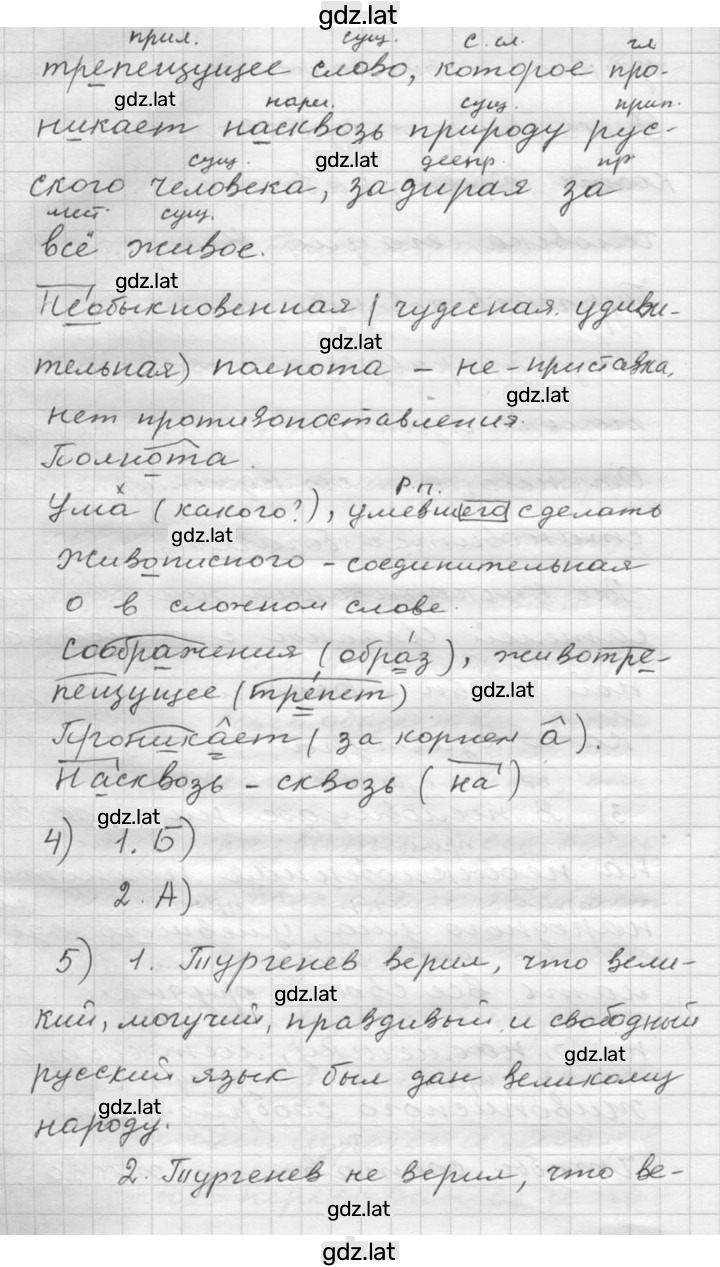 gdz.lat
прил. сущ. с.сл. гл
трепещущее слово, которое про-
gdz.lat нареч. сущ. прил.
никает насквозь природу рус-
сущ. gdz.lat деепр. пр
ского человека, задирая за
мест. сущ.
всё живое.
gdz.lat
Необыкновенная (чудесная. удиви-
gdz.lat
тельная) полнота – не-приставка,
gdz.lat
нет противопоставления.
Полнота.
Р.п.
Ума (какого?), умевшего сделать
gdz.lat
живописного – соединительная
о в сложном слове.
Соображения (образ), животре-
пещущее (трепет) gdz.lat
Проникает (за корнем а).
Насквозь – сквозь (на)
gdz.lat
4) 1. Б)
2. А)
5) 1. Тургенев верил, что вели-
gdz.lat
кий, могучий, правдивый и свободный
gdz.lat
русский язык был дан великому
gdz.lat
народу.
2. Тургенев не верил, что ве-
gdz.lat
gdz.lat